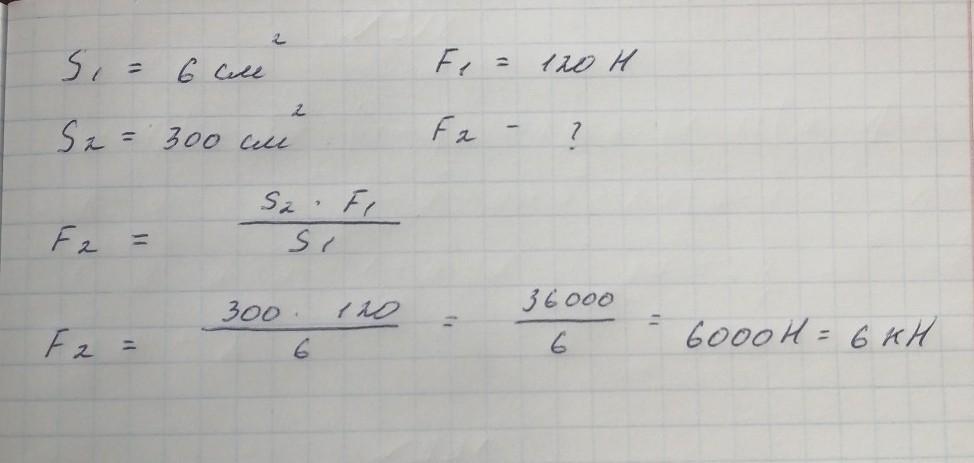 S₁ = 6 см² F₁ = 120 Н
S₂ = 300 см² F₂ - ?
F₂ = S₂ · F₁ / S₁
F₂ = 300 · 120 / 6 = 36000 / 6 = 6000 Н = 6 кН